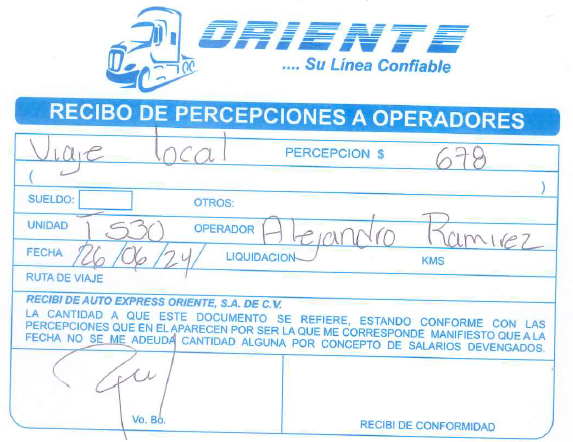 ORIENTE
.... Su Línea Confiable
RECIBO DE PERCEPCIONES A OPERADORES
Viaje local PERCEPCION $ 678
( )
SUELDO: OTROS:
UNIDAD T530 OPERADOR Alejandro Ramirez
FECHA 26/06/24/ LIQUIDACION KMS
RUTA DE VIAJE
RECIBI DE AUTO EXPRESS ORIENTE, S.A. DE C.V.
LA CANTIDAD A QUE ESTE DOCUMENTO SE REFIERE, ESTANDO CONFORME CON LAS
PERCEPCIONES QUE EN EL APARECEN POR SER LA QUE ME CORRESPONDE MANIFIESTO QUE A LA
FECHA NO SE ME ADEUDA CANTIDAD ALGUNA POR CONCEPTO DE SALARIOS DEVENGADOS.
Vo. Bo. RECIBI DE CONFORMIDAD